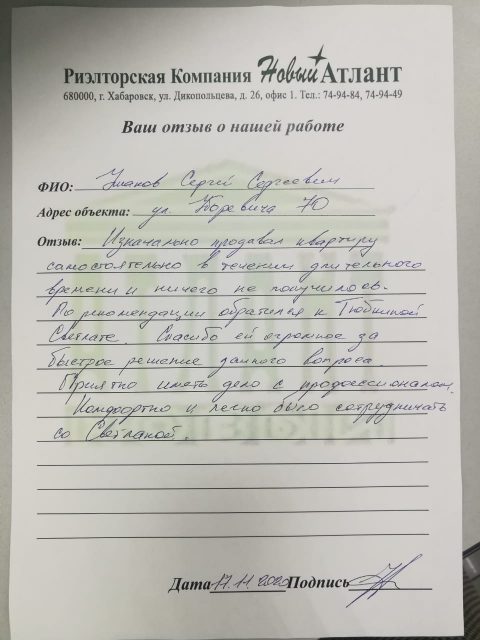 Риэлторская Компания Новый Атлант
680000, г. Хабаровск, ул. Дикопольцева, д. 26, офис 1. Тел.: 74-94-84, 74-94-49
Ваш отзыв о нашей работе
ФИО: Ушаков Сергей Сергеевич
Адрес объекта: ул. Уборевича 70
Отзыв: Изначально продавал квартиру
самостоятельно в течении длительного
времени и ничего не получилось.
По рекомендации обратился к Тюткиной
Светлане. Спасибо ей огромное за
быстрое решение данного вопроса.
Приятно иметь дело с профессионалом.
Комфортно и легко было сотрудничать
со Светланой.
Дата 17.11.2020 Подпись